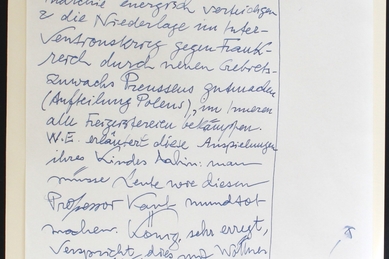 energisch verteidigen
& die Niederlage im Inter-
ventionskrieg gegen Frank-
reich durch neuen Gebiets-
zuwachs Preussens gutmachen
(Aufteilung Polens), im Inneren
alle Freigeistereien bekämpfen.
W.E. erläutert diese Anspielungen
ihres Kindes dahin: man
müsse Leute wie diesen
Professor Kant mundtot
machen. König, sehr erregt,
verspricht, dies mit Wöllner